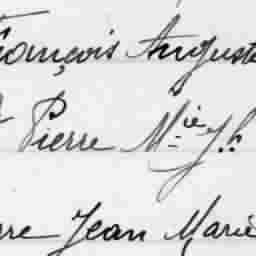 François Auguste
Pierre Mie Jh
rre Jean Marie